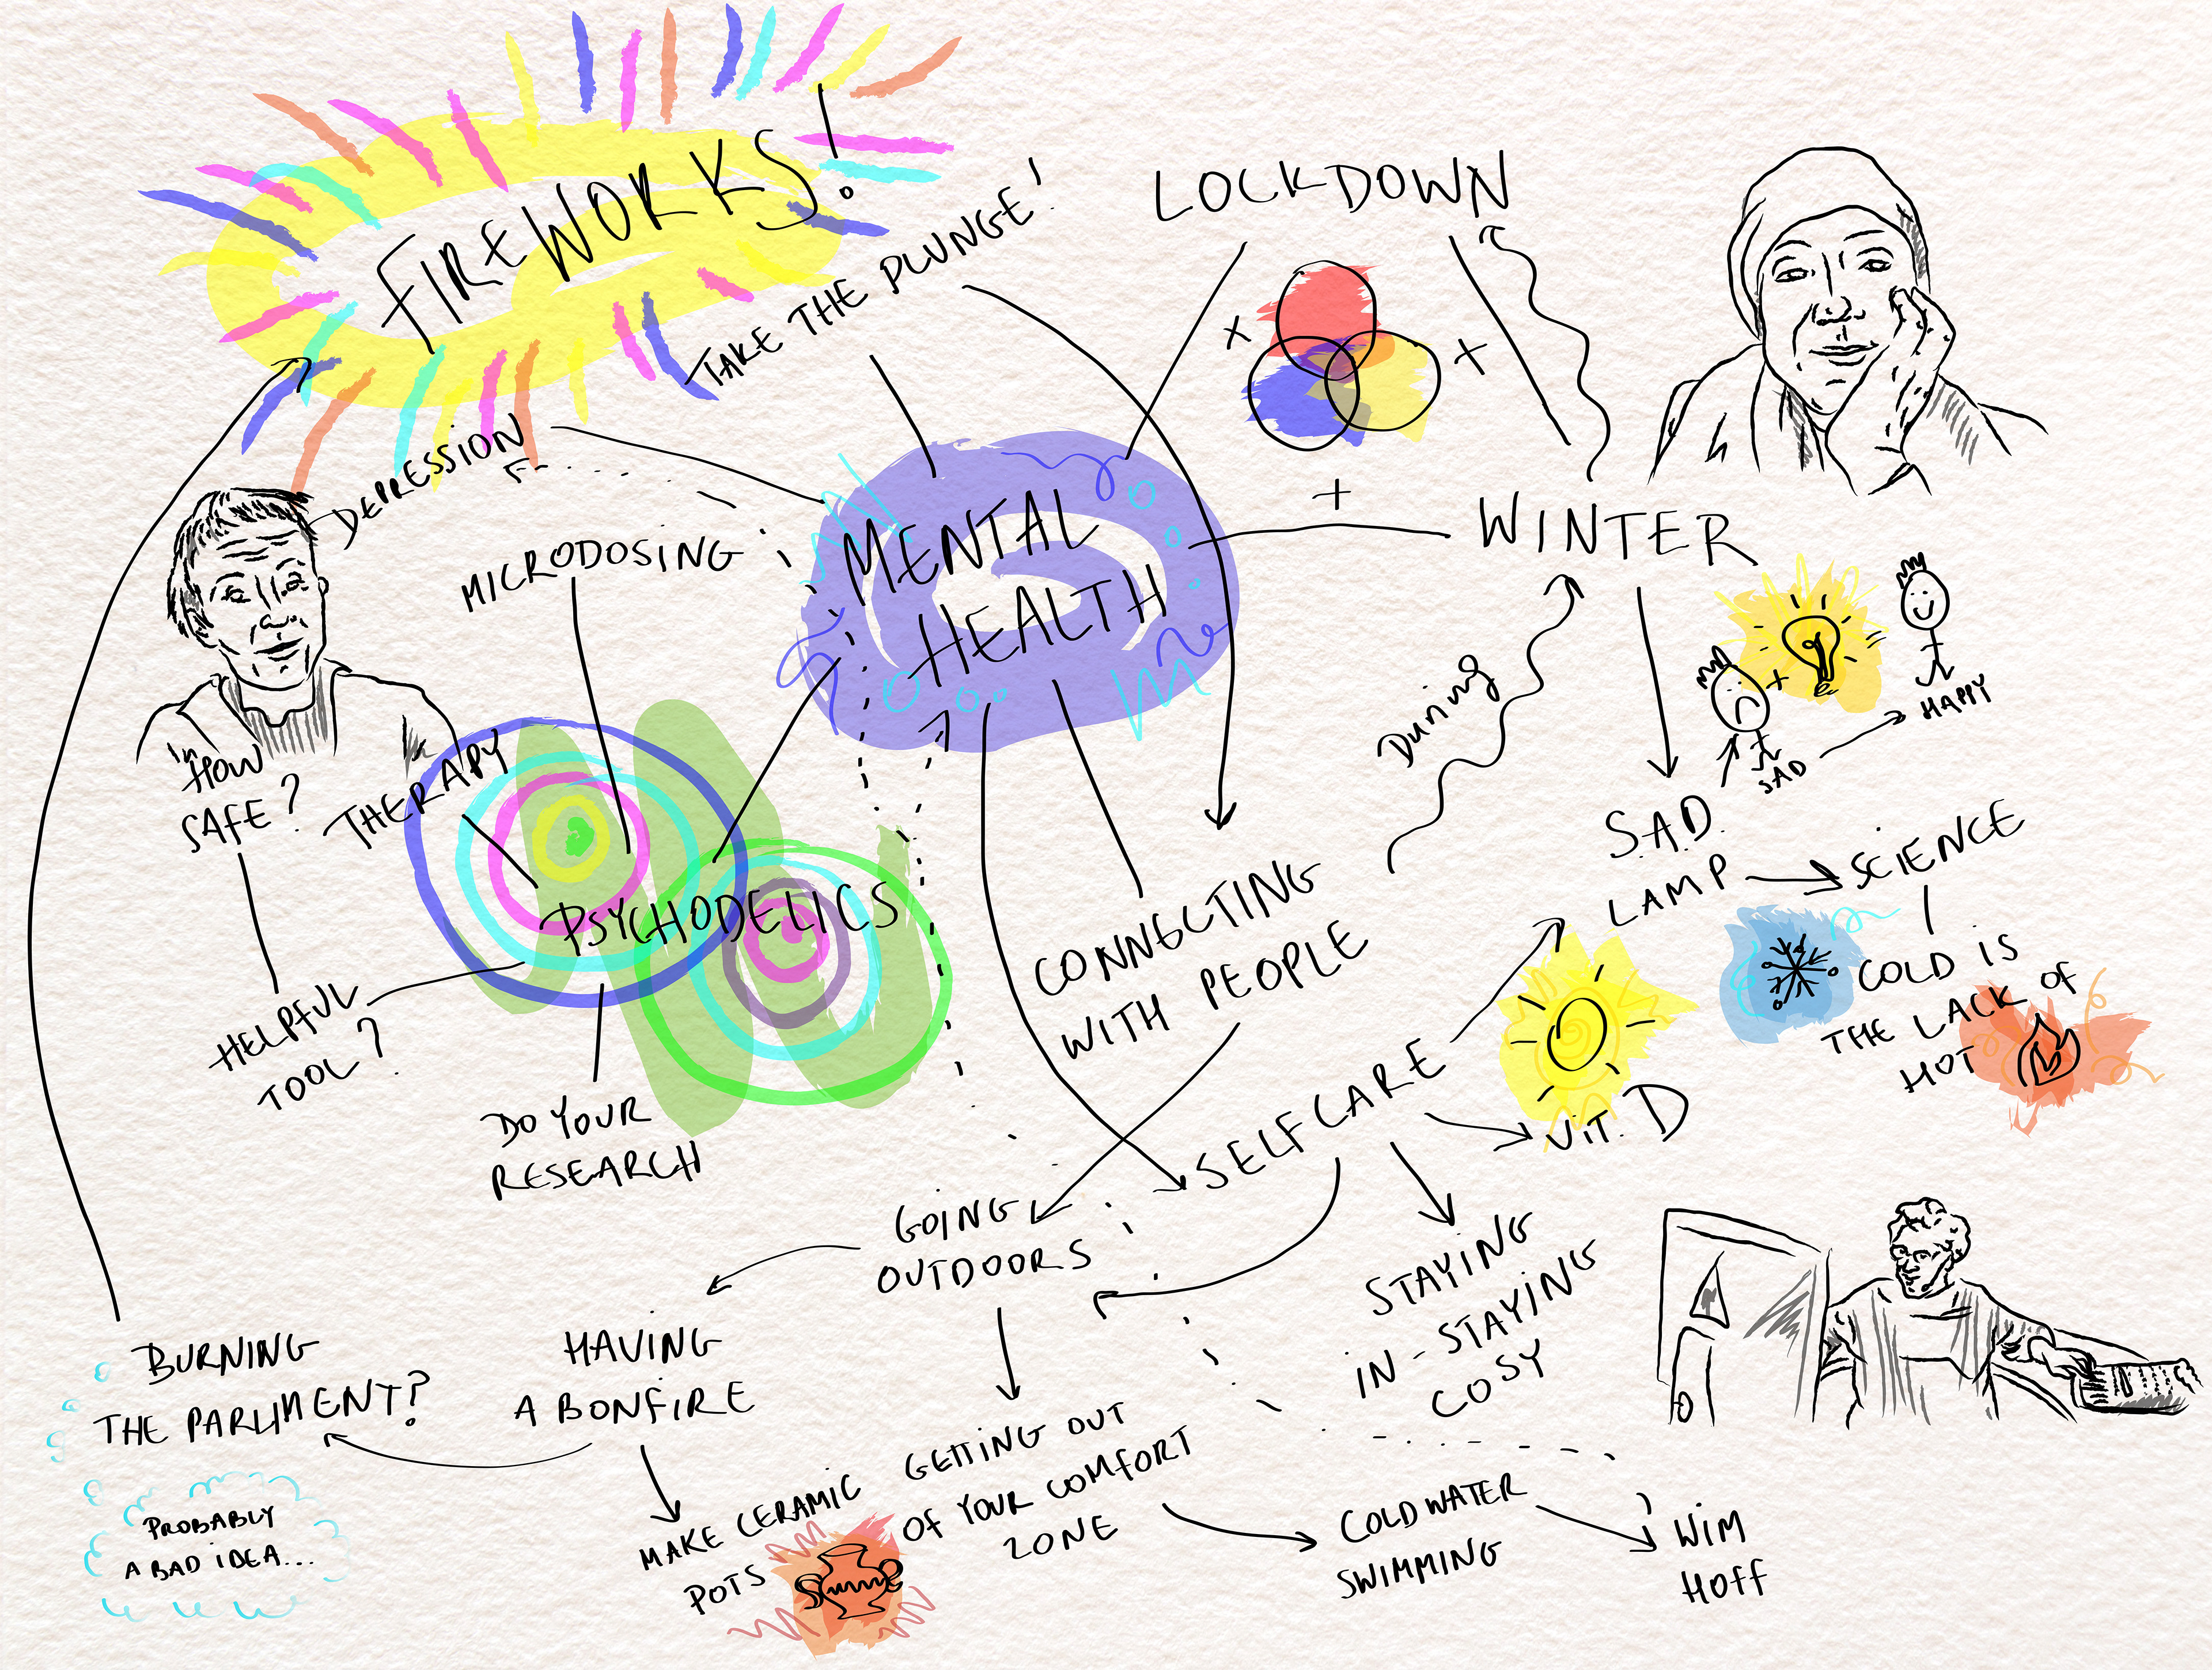 FIREWORKS!
TAKE THE PLUNGE!
LOCKDOWN
DEPRESSION
MICRODOSING
MENTAL
HEALTH
WINTER
HAPPY
SAD
During
"HOW
SAFE?
THERAPY
PSYCHODELICS
HELPFUL
TOOL?
DO YOUR
RESEARCH
CONNECTING
WITH PEOPLE
S.A.D.
LAMP
SCIENCE
COLD IS
THE LACK OF
HOT
SELFCARE
ViT. D
GOING
OUTDOORS
STAYING
IN - STAYING
COSY
BURNING
THE PARLIMENT?
PROBABLY
A BAD IDEA...
HAVING
A BONFIRE
MAKE CERAMIC
POTS
GETTING OUT
OF YOUR COMFORT
ZONE
COLD WATER
SWIMMING
WIM
HOFF